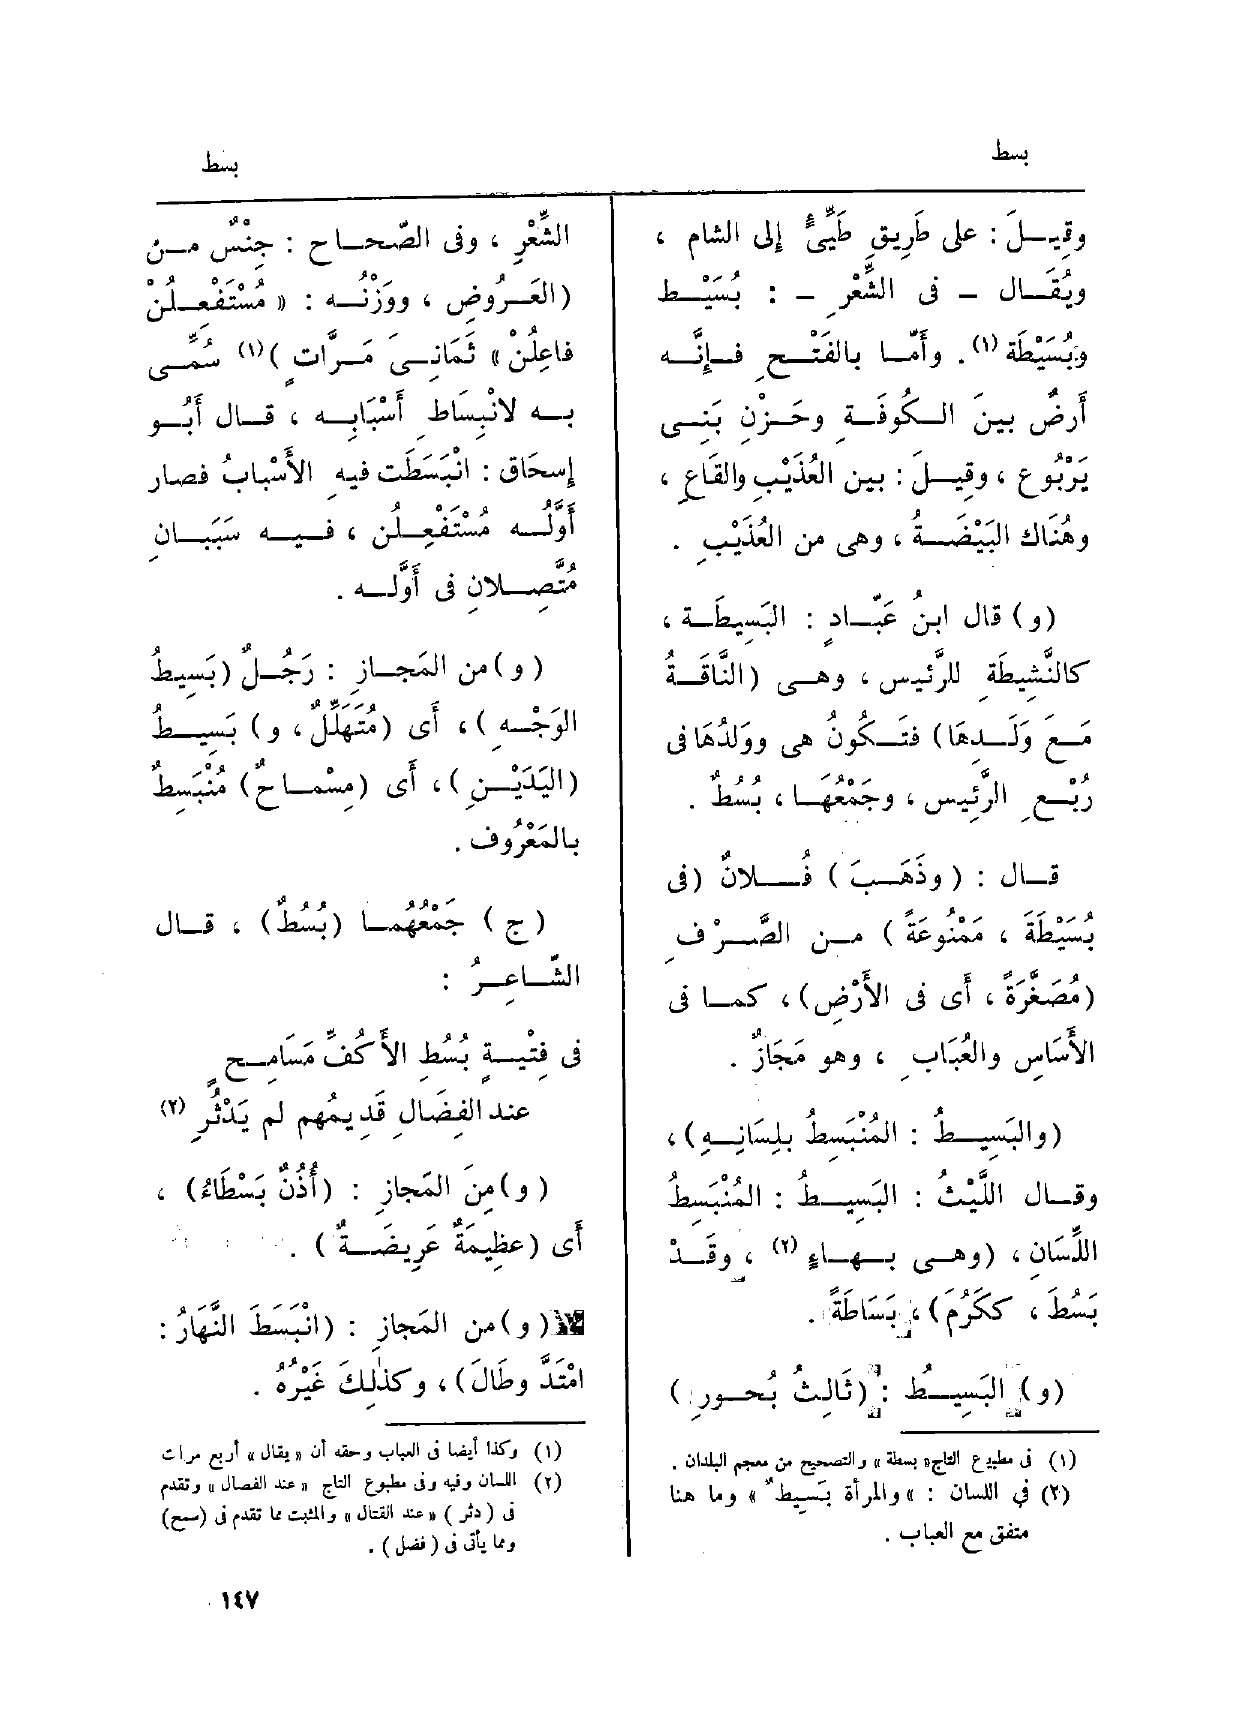 بسط
وقِيــلَ : على طَرِيقِ طَيِّئٍ إلى الشام ،
ويُقَــال – فى الشِّعْرِ – : بُسَيْــط
وبُسَيْطَة (١) . وأَمّـا بالفَتْـحِ فــإِنَّــه
أَرضٌ بينَ الــكُوفَــةِ وحَــزْنِ بَنِــى
يَرْبُوعٍ ، وقِيــلَ : بين العُذَيْبِ والقَاعِ ،
وهُنَاك البَيْضَــةُ ، وهى من العُذَيْبِ .
(و) قال ابنُ عَبّــادٍ : البَسِيطَــة ،
كالنَّشِيطَةِ للرَّئِيس ، وهــى (النَّاقَــةُ
مَــع وَلَــدِهَا) فتَــكُونُ هى ووَلَدُهَا فى
رُبْــعِ الرَّئِيس ، وجَمْعُهــا ، بُسُطٌ .
قــال : (وذَهَــبَ) فُــلانٌ (فى
بُسَيْطَةَ ، مَمْنُوعَةً) مــن الصَّــرْفِ
(مُصَغَّرَةً ، أَى فى الأَرْضِ) ، كمــا فى
الأَسَاسِ والعُبَابِ ، وهو مَجَازٌ .
(والبَسِيــطُ : المُنْبَسِطُ بلِسَانِــهِ) ،
وقــال اللَّيْثُ : البَسِيــطُ : المُنْبَسِطُ
اللِّسَان ، (وهــى بــهــاءٍ (٢) ، وقَــدْ
بَسُطَ ، ككَرُمَ) ، بَسَاطَةً .
(و) البَسِيــطُ : (ثَالِثُ بُحــورِ)
(١) فى مطبوع التاج «بسطة» والتصحيح من معجم البلدان .
(٢) فى اللسان : «والمرأة بَسِيط» وما هنا
متفق مع العباب .
بسط
الشِّعْرِ ، وفى الصّحــاح : جِنْسٌ مــن
(العَــرُوض ، ووَزْنُــه : « مُسْتَفْعِــلُنْ
فاعِلُنْ » ثَمَانِــىَ مَــرَّاتٍ )(١) سُمِّــى
بــه لانْبِسَاطِ أَسْبَابِــه ، قــال أَبُــو
إِسحَاق : انْبَسَطَت فيه الأَسْبابُ فصار
أَوَّلُــه مُسْتَفْعِــلُن ، فــيــه سَبَبَــانِ
مُتَّصِــلانِ فى أَوَّلــه .
(و) من المَجــازِ : رَجُــلٌ (بَسِيطُ
الوَجْــهِ) ، أَى (مُتَهَلِّلٌ ، و) بَسِيــطُ
(اليَدَيْــنِ) ، أَى (مِسْمــاحٌ) مُنْبَسِطٌ
بالمَعْرُوف .
(ج) جَمْعُهُمــا (بُسُطٌ) ، قــال
الشّــاعِــرُ :
فى فِتْيَــةٍ بُسُطِ الأَكُفِّ مَسَامِــحٍ
عند الفِضَالِ قَدِيمُهم لم يَدْثُرِ (٢)
(و) مِنَ المَجازِ : (أُذُنٌ بَسْطَاءُ) ،
أَى (عظِيمَةٌ عَرِيضَــةٌ) .
(و) من المَجازِ : (انْبَسَطَ النَّهَارُ :
امْتَدَّ وطَالَ) ، وكذٰلِكَ غَيْرُهُ .
(١) وكذا أيضا فى العباب وحقه أن «يقال» أربع مرات
(٢) اللسان وفيه وفى مطبوع التاج «عند الفصال» وتقدم
فى (دثر) «عند القتال» والمثبت مما تقدم فى (سمح)
ومما يأتى فى (فضل) .
١٤٧